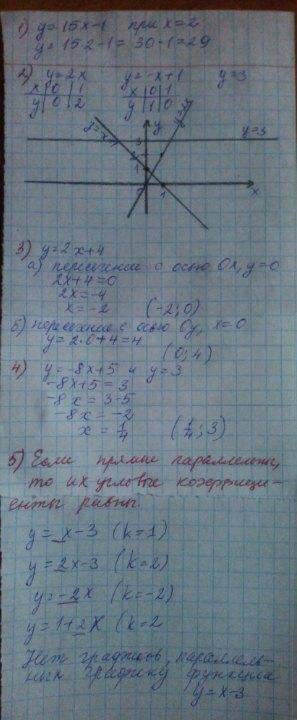 1) y=15x-1 при x=2
y=15·2-1=30-1=29
2) y=2x y=-x+1 y=3
x 0 1 x 0 1
y 0 2 y 1 0
y
y=3
3
1
0 1 x
3) y=2x+4
а) пересечение с осью Ox, y=0
2x+4=0
2x=-4
x=-2 (-2;0)
б) пересечение с осью Oy, x=0
y=2·0+4=4
(0;4)
4) y=-8x+5 и y=3
-8x+5=3
-8x=3-5
-8x=-2
x=1/4 (1/4;3)
5) Если прямые параллельны,
то их угловые коэффици-
енты равны.
y=x-3 (k=1)
y=2x-3 (k=2)
y=-2x (k=-2)
y=1+2x (k=2
Нет графиков, параллель-
ных графику функции
y=x-3